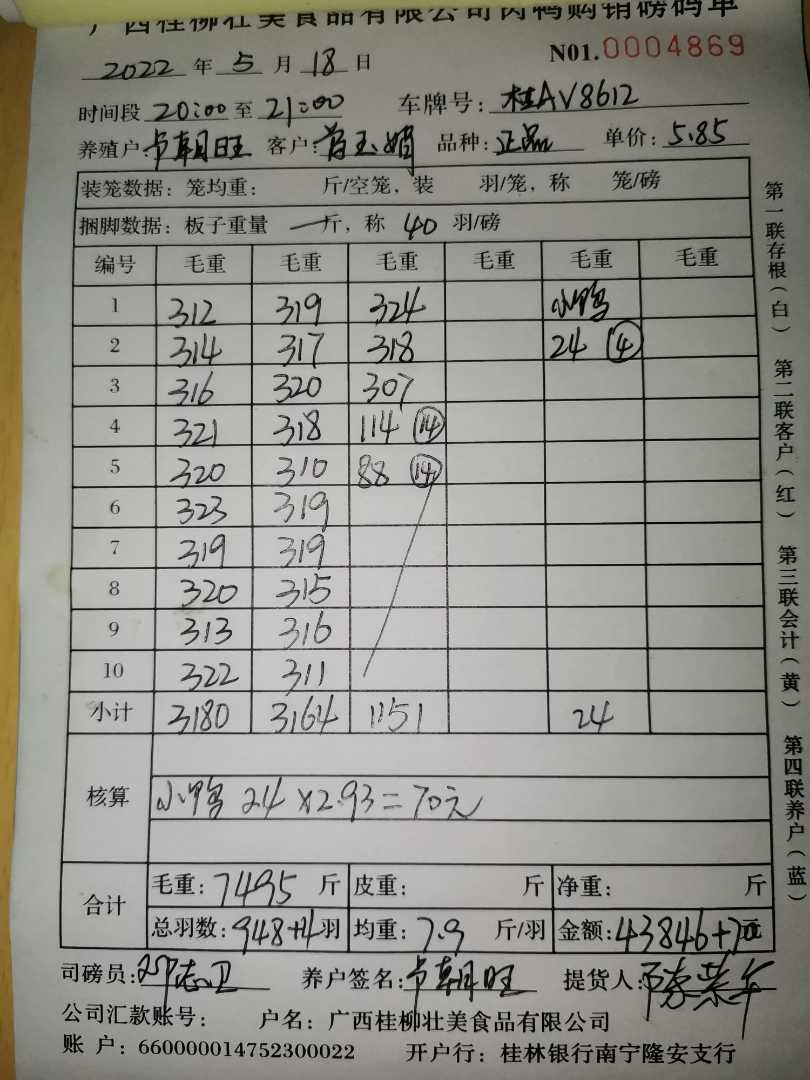 广西桂柳壮美食品有限公司肉鸭购销磅码单
2022 年 5 月 18 日 N01.0004869
时间段 20:00 至 21:00 车牌号: 桂AV8612
养殖户: 卢朝旺 客户: 品种: 正品 单价: 5.85
装笼数据: 笼均重: 斤/空笼, 装 羽/笼, 称 笼/磅
捆脚数据: 板子重量 一 斤, 称 40 羽/磅
编号 毛重 毛重 毛重 毛重 毛重 毛重
1 312 319 324 小鸭
2 314 317 318 24 ④
3 316 320 307
4 321 318 114 ⑭
5 320 310 88 ⑭
6 323 319
7 319 319
8 320 315
9 313 316
10 322 311
小计 3180 3164 1151 24
核算
小鸭 24 ×2.93=70元
合计
毛重: 7495 斤 皮重: 斤 净重: 斤
总羽数: 948+4 羽 均重: 7.9 斤/羽 金额: 43846+70 元
司磅员: 养户签名: 卢朝旺 提货人:
公司汇款账号: 户名: 广西桂柳壮美食品有限公司
账 户: 660000014752300022 开户行: 桂林银行南宁隆安支行
第一联存根(白) 第二联客户(红) 第三联会计(黄) 第四联养户(蓝)